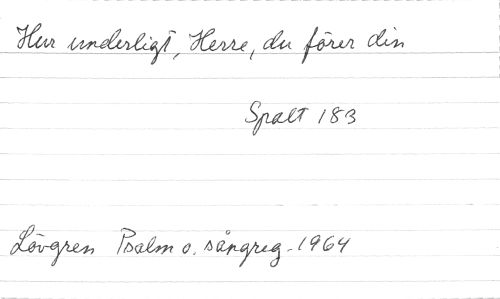 Hur underligt, Herre, du förer din
Spalt 183
Lövgren Psalm o. sångreg. 1964